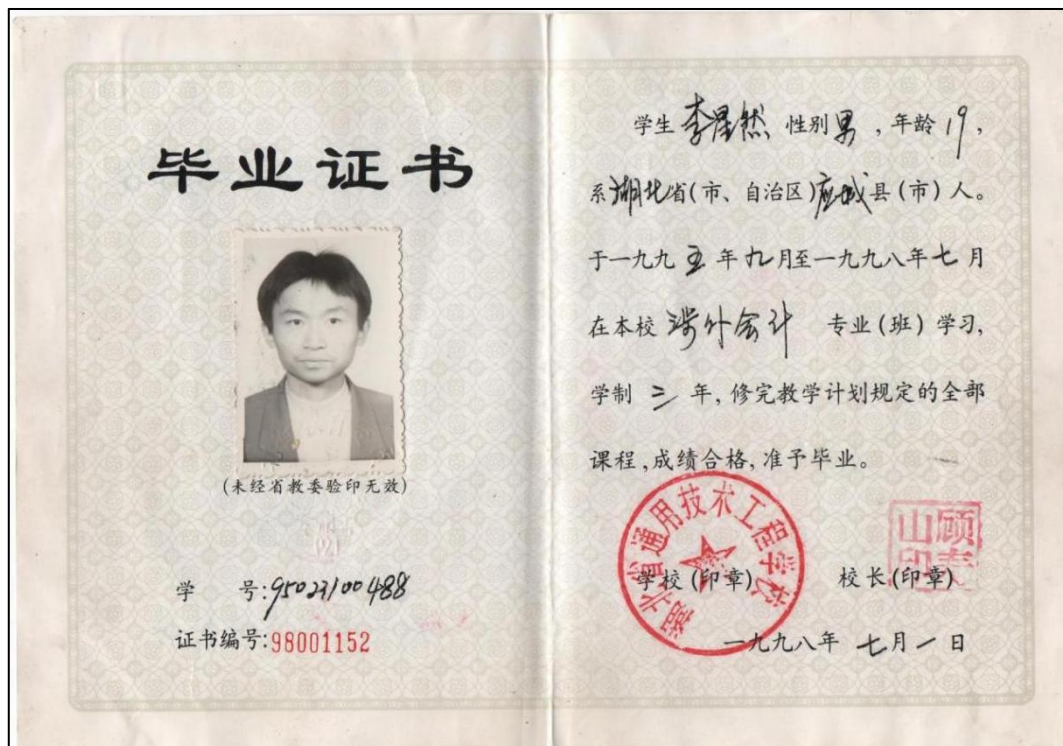 毕业证书
(未经省教委验印无效)
学 号:95023100488
证书编号:98001152
学生李星然 性别男,年龄19,
系湖北省(市、自治区)应城县(市)人。
于一九九五年九月至一九九八年七月
在本校涉外会计 专业(班)学习,
学制三年,修完教学计划规定的全部
课程,成绩合格,准予毕业。
湖北省通用技术工程学校
学校(印章) 校长(印章)
一九九八年七月一日